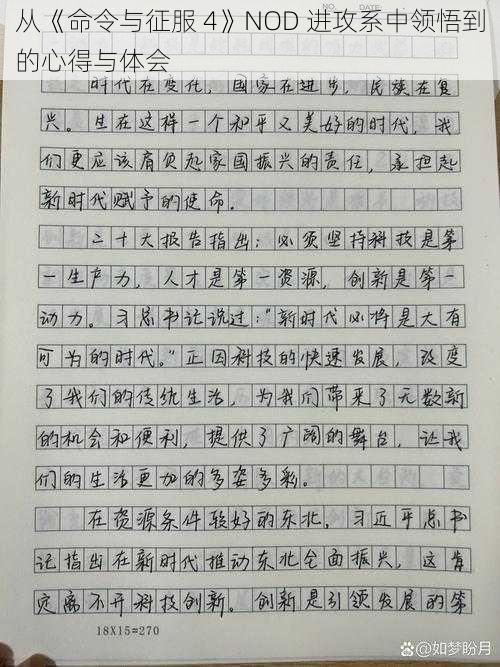 从《命令与征服 4》NOD 进攻系中领悟到
的心得与体会
时代在变化，国家在进步，民族在复
兴。生在这样一个和平又美好的时代，我
们更应该肩负起家国振兴的责任，承担起
新时代赋予的使命.
二十大报告指出：必须坚持科技是第
一生产力，人才是第一资源，创新是第一
动力。习总书记说过："新时代必将是大有
可为的时代。"正因科技的快速发展，改变
了我们的传统生活，为我们带来了无数新
的机会和便利，提供了广阔的舞台，让我
们的生活更加的多姿多彩。
在资源条件较好的东北，习近平总书
记指出在新时代推动东北全面振兴，这肯
定离不开科技创新。创新是引领发展的第
18X15=270
@如梦盼月